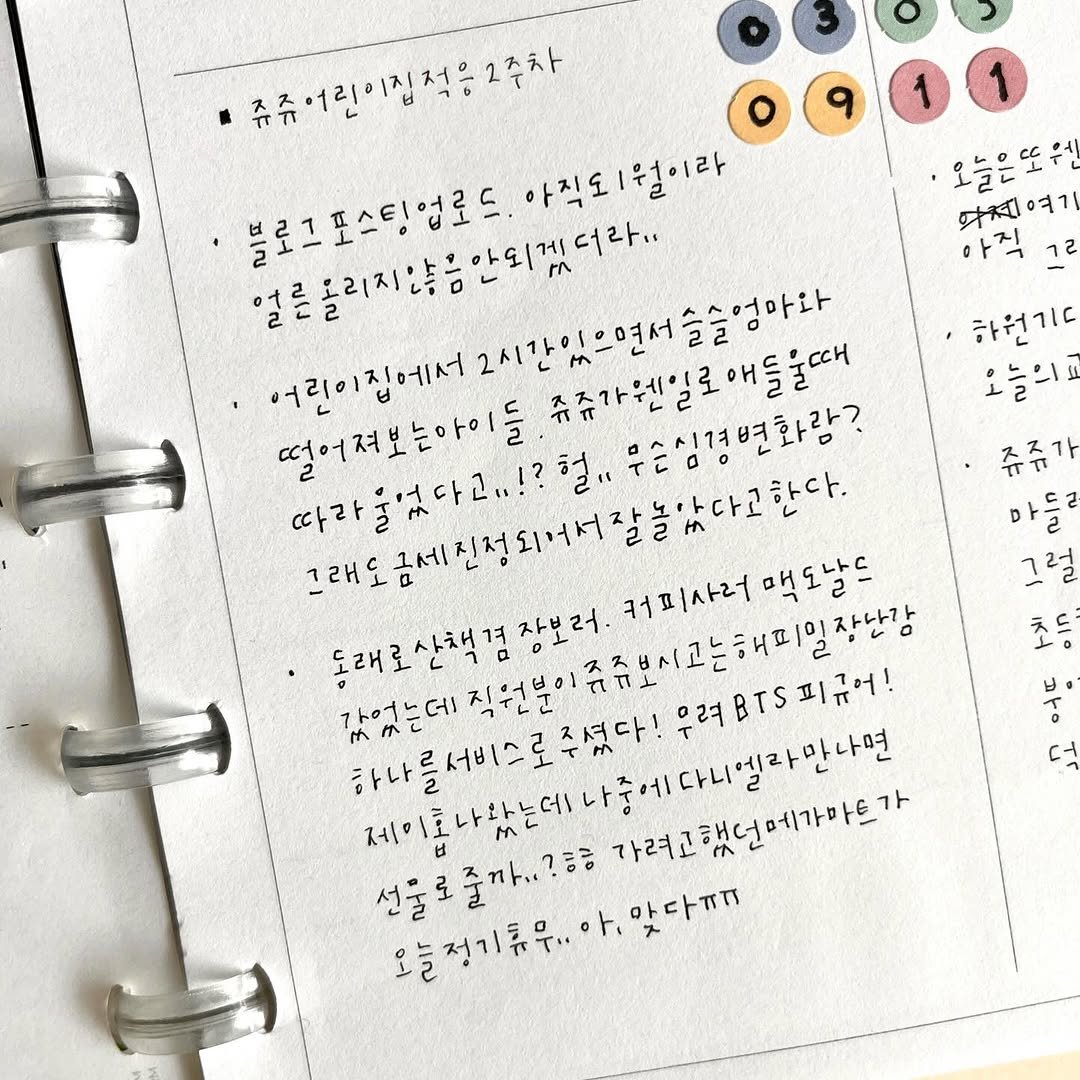 0 3 0 5
0 9 1 1
▪ 쥬쥬어린이집적응 2주차
· 블로그 포스팅 업로드. 아직도 1월이라
얼른 올리지않음 안되겠더라..
· 어린이집에서 2시간있으면서 슬슬엄마와
떨어져보는아이들. 쥬쥬가웬일로 애들울때
따라울었다고..!? 헐.. 무슨심경변화람?
그래도 금세진정되어서 잘놀았다고한다.
· 동래로 산책겸 장보러. 커피사러 맥도날드
갔었는데 직원분이 쥬쥬보시고는해피밀장난감
하나를서비스로주셨다! 무려 BTS 피규어!
제이홉나왔는데 나중에다니엘라만나면
선물로줄까..?ㅎㅎ 가려고했던메가마트가
오늘정기휴무.. 아, 맞다ㅠㅠ
· 오늘은또웬
여기
아직
· 하원기다
오늘의
· 쥬쥬가
마들
그럴
초등
붕어